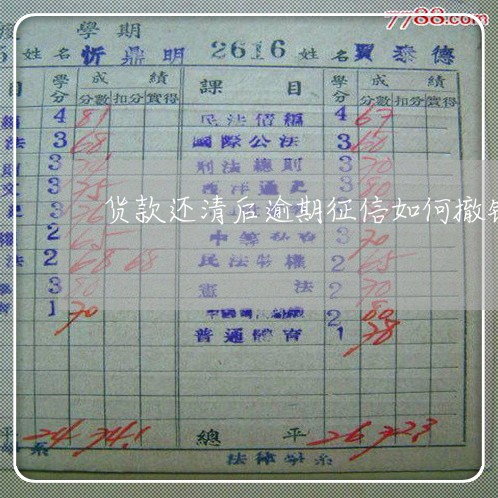 7788.com
學期
5 姓名 忻鼎明 2616 姓名 賈泰德
目 學分 成績 課目 學分 成績
分數 扣分 實得 分數 扣分 實得
4 81 民法債編 4 67
法 3 68 國際公法 3 60
3 刑法總則 3 70
3 75 西洋通史 3 80
3 76
货款还清后逾期征信如何撤销
2 65 3 70
法 2 68 68 民法物權 2 65
3 80 憲法 2 70
1 70 2 80
普通體育 1 78
平 24 74.1 總平 26 72.3
系 法律學系